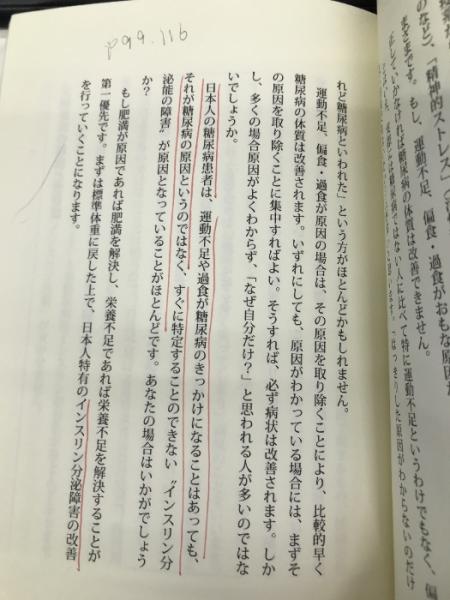 のなど)、「精神的ストレス」
まざまです。もし、運動不足、偏食・過食がおもな原因
正していかなければ糖尿病の体質は改善できません。
糖尿病ではない人に比べて特に運動不足というわけでもなく、偏
「はっきりした原因がわからないのだけ
p99.116
れど糖尿病といわれた」という方がほとんどかもしれません。
運動不足、偏食・過食が原因の場合は、その原因を取り除くことにより、比較的早く
糖尿病の体質は改善されます。いずれにしても、原因がわかっている場合には、まずそ
の原因を取り除くことに集中すればよい。そうすれば、必ず病状は改善されます。しか
し、多くの場合原因がよくわからず、「なぜ自分だけ？」と思われる人が多いのではな
いでしょうか。
日本人の糖尿病患者は、運動不足や過食が糖尿病のきっかけになることはあっても、
それが糖尿病の原因というのではなく、すぐに特定することのできない〝インスリン分
泌能の障害〟が原因となっていることがほとんどです。あなたの場合はいかがでしょう
か？
もし肥満が原因であれば肥満を解決し、栄養不足であれば栄養不足を解決することが
第一優先です。まずは標準体重に戻した上で、日本人特有のインスリン分泌障害の改善
を行っていくことになります。